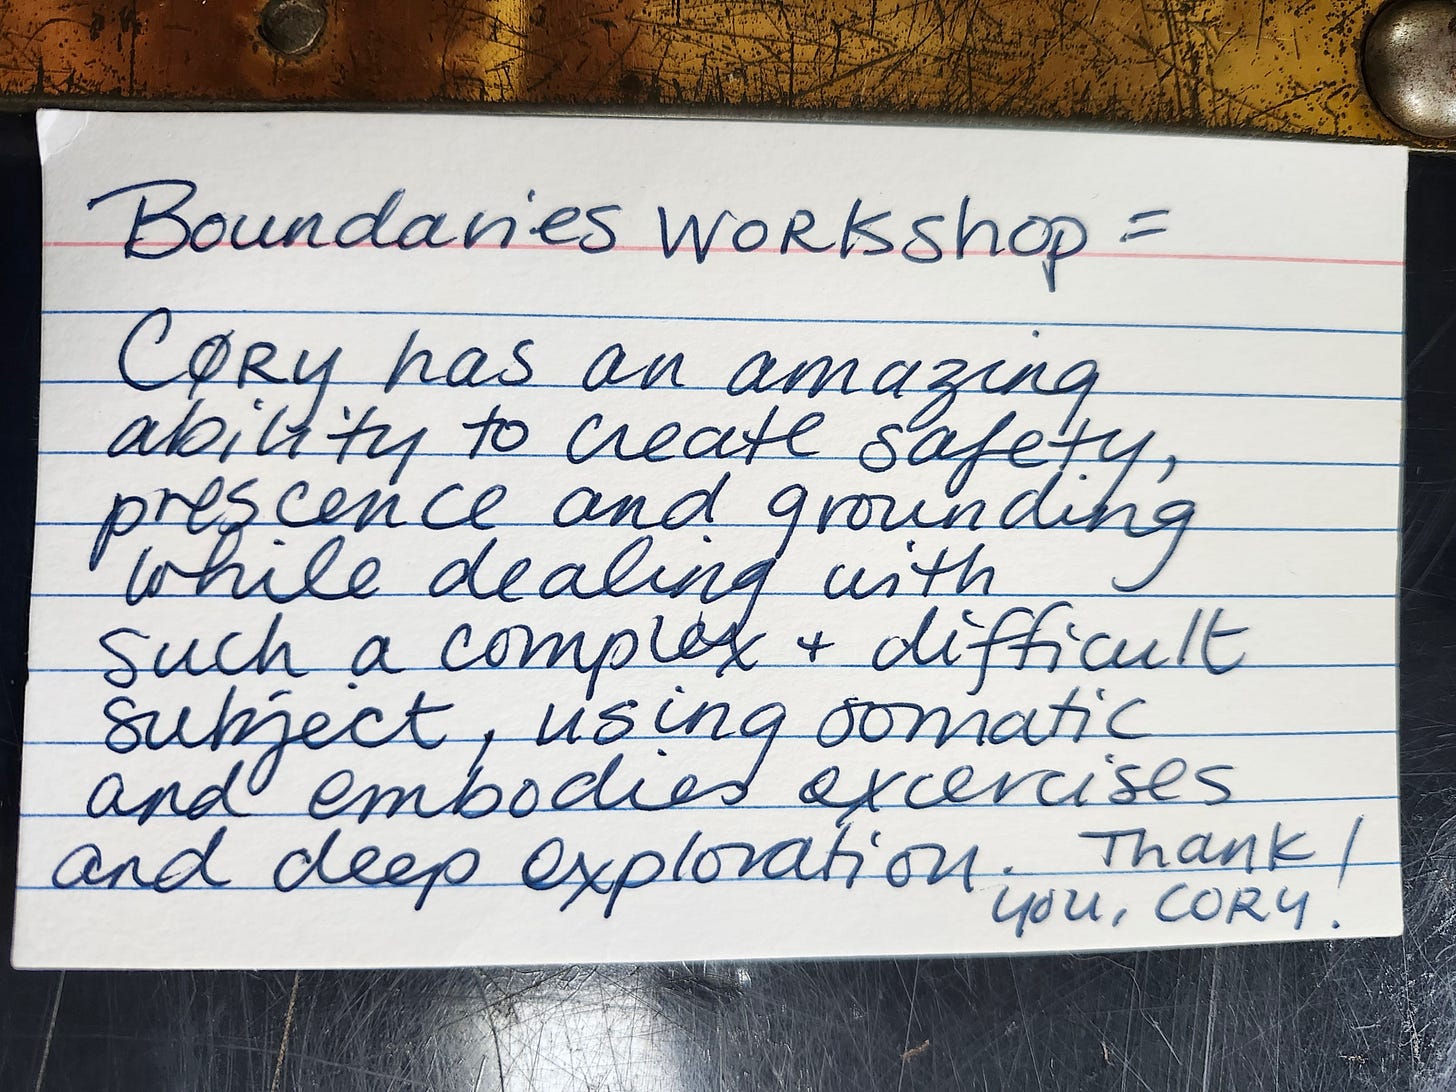 Boundaries Workshop =
Cory has an amazing
ability to create safety,
prescence and grounding
while dealing with
such a complex + difficult
subject, using somatic
and embodies excercises
and deep exploration. Thank
you, Cory!